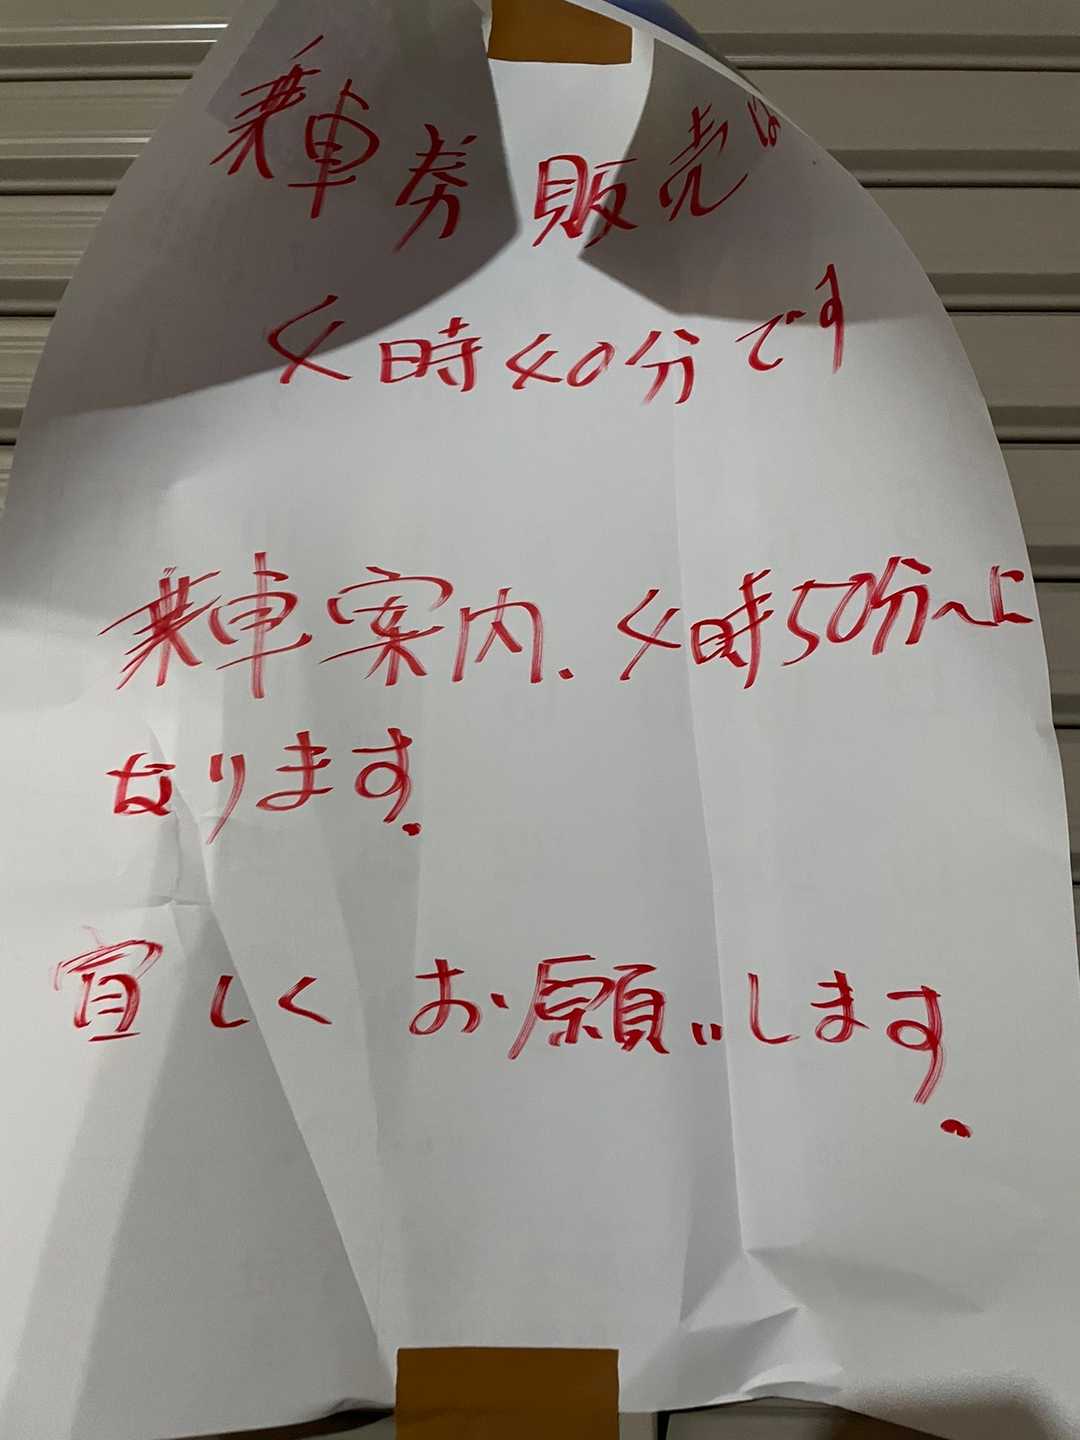 乗車券販売は
4時40分です
乗車案内、4時50分〜に
なります。
宜しくお願いします。